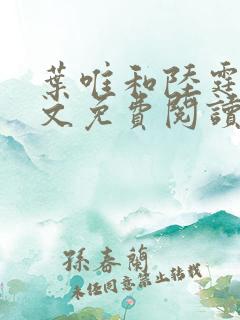 葉唯和陸霆
文免費閱讀
孫春蘭
未經同意禁止轉載